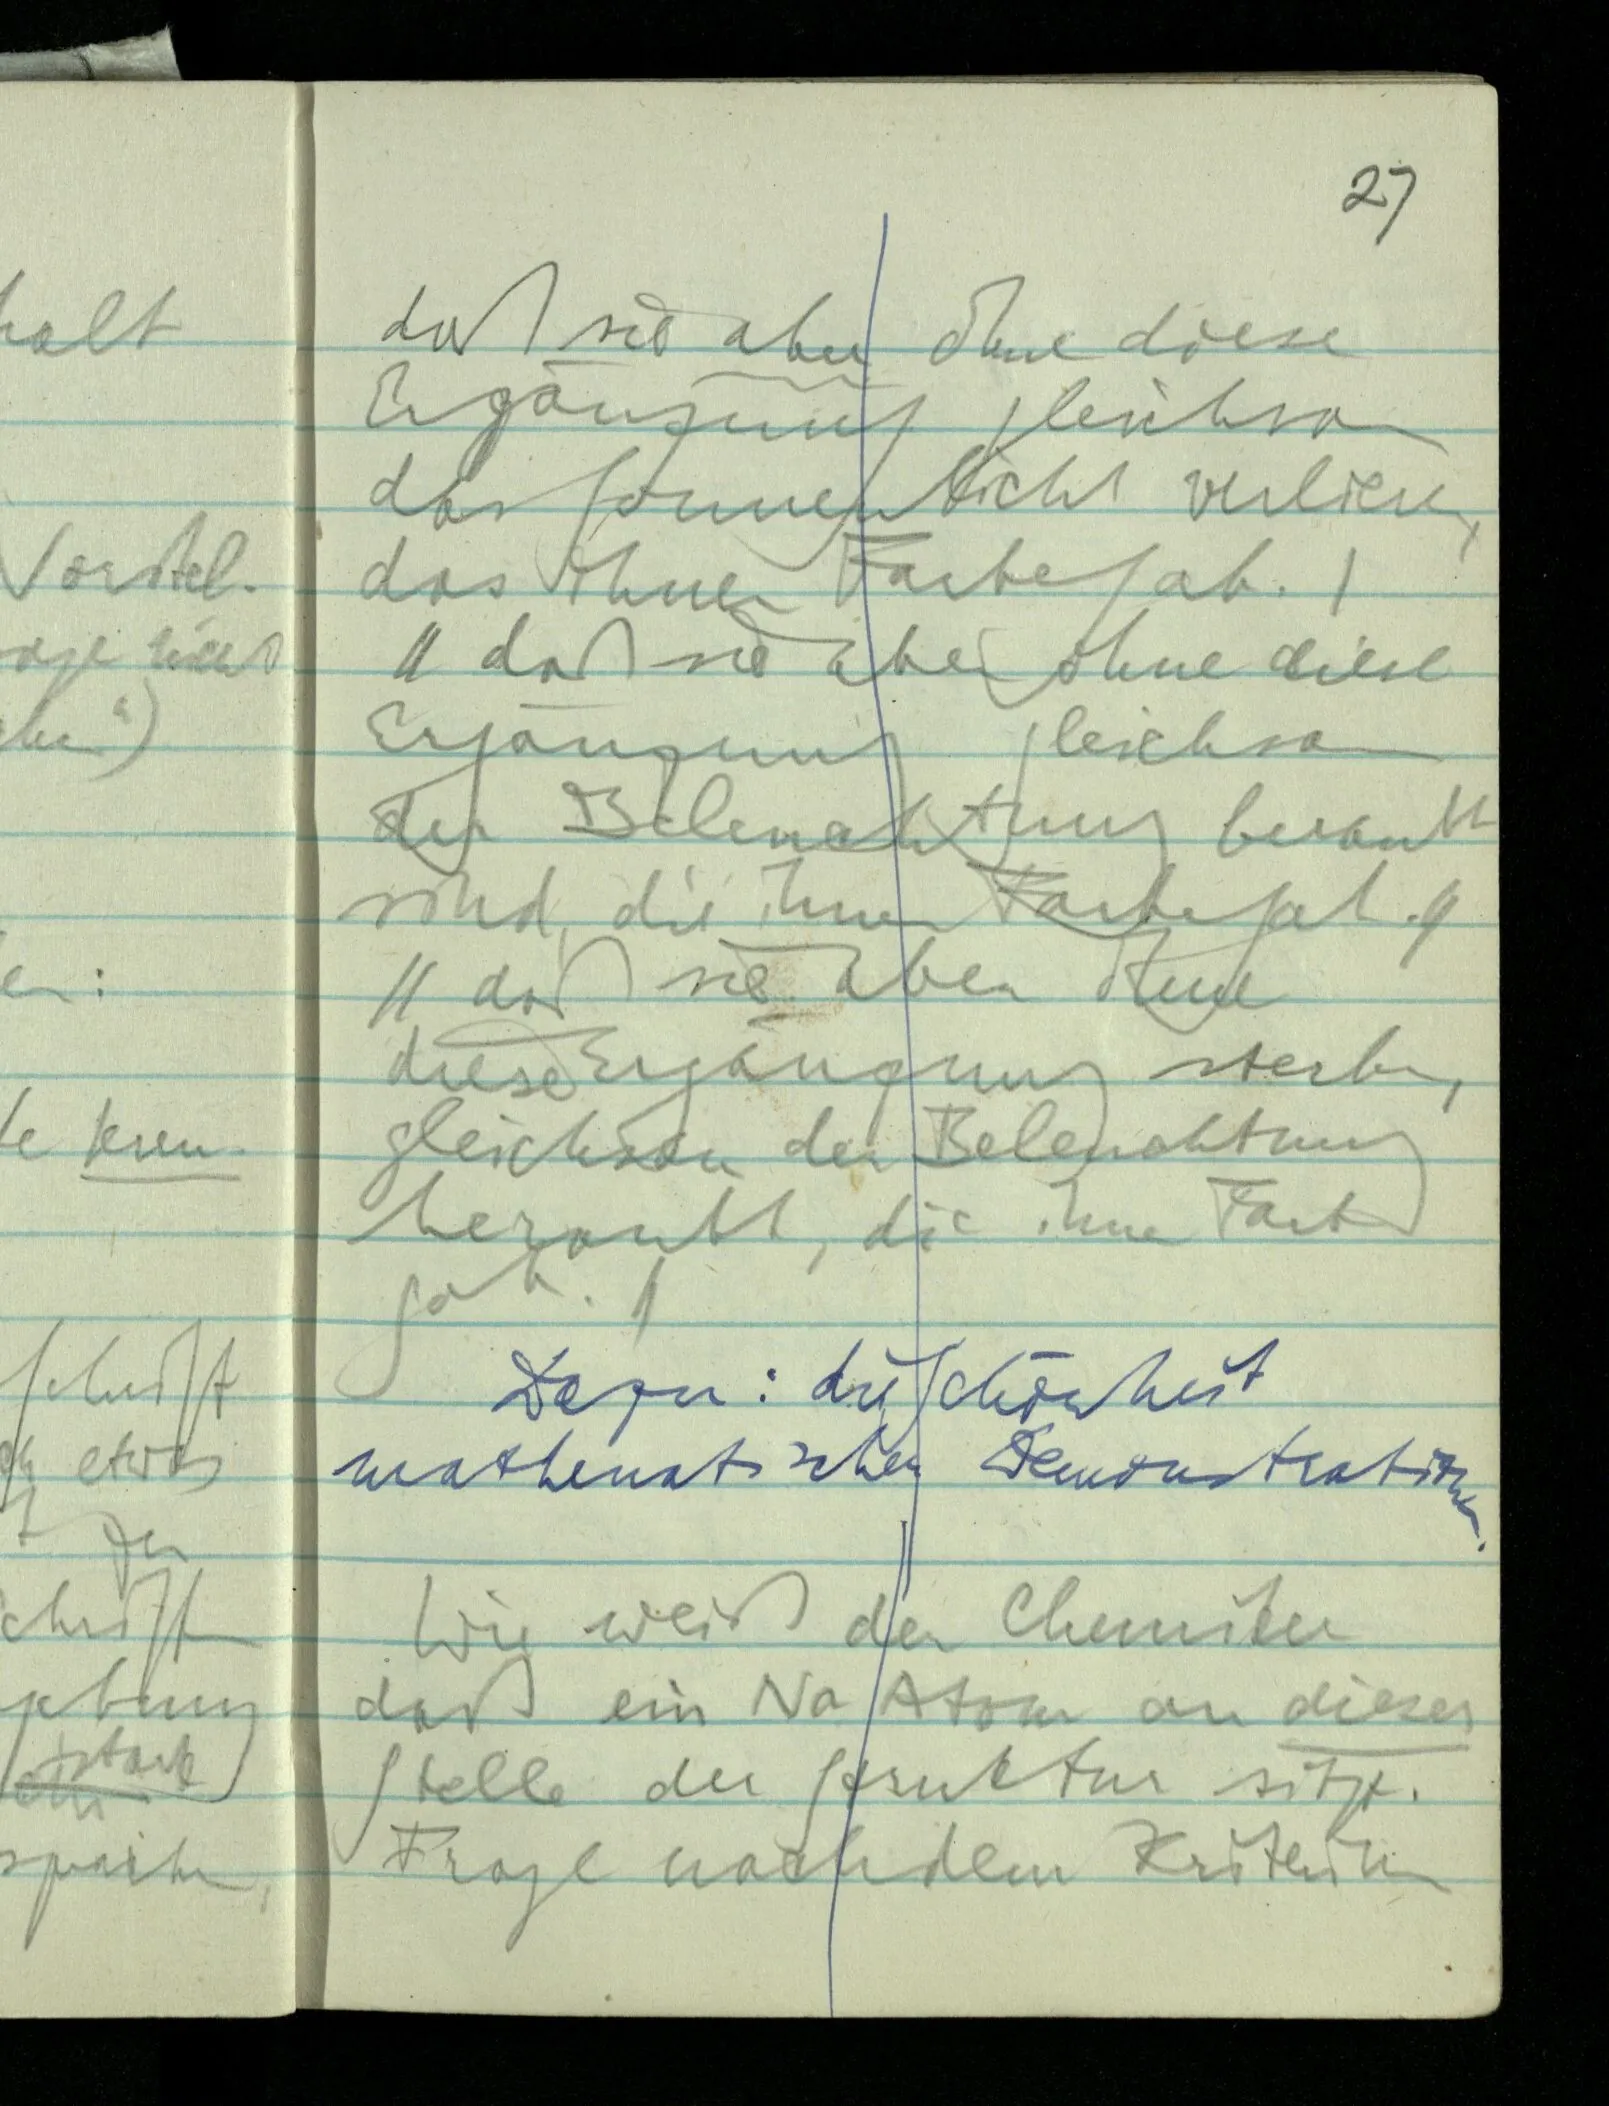 27
daß sie aber ohne diese
Ergänzung gleichsam
das Sonnenlicht verlieren,
das ihnen Farbe gab. |
|| daß sie aber ohne diese
Ergänzung gleichsam
der Beleuchtung beraubt
sind, die ihnen Farbe gab.
|| daß sie aber ohne
diese Ergänzung sterben,
gleichsam der Beleuchtung
beraubt, die ihnen Farbe
gab. |
Dazu: die Schönheit
mathematischer Demonstrationen.
Wie weiß der Chemiker
daß ein Na Atom an dieser
Stelle der Struktur sitzt.
Frage nach dem Kriterium
halt
Vorstel-
:
Schrift
etwas
zu
stark